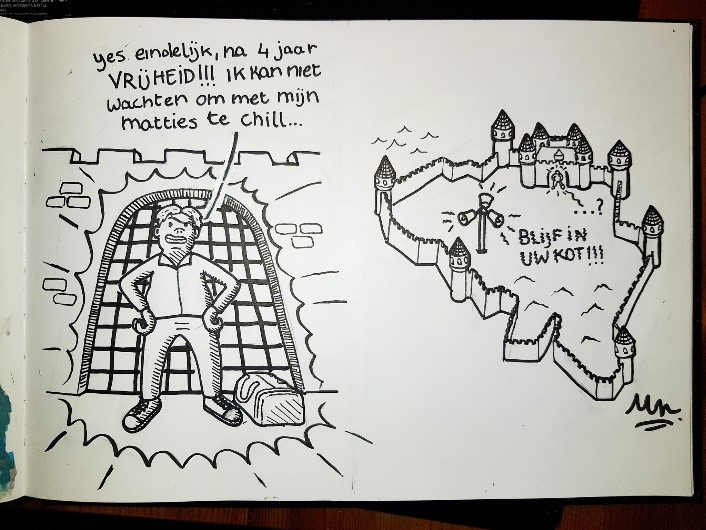 yes eindelijk, na 4 jaar
VRIJHEID!!! ik kan niet
wachten om met mijn
matties te chill...
...?
BLIJF IN
UW KOT!!!